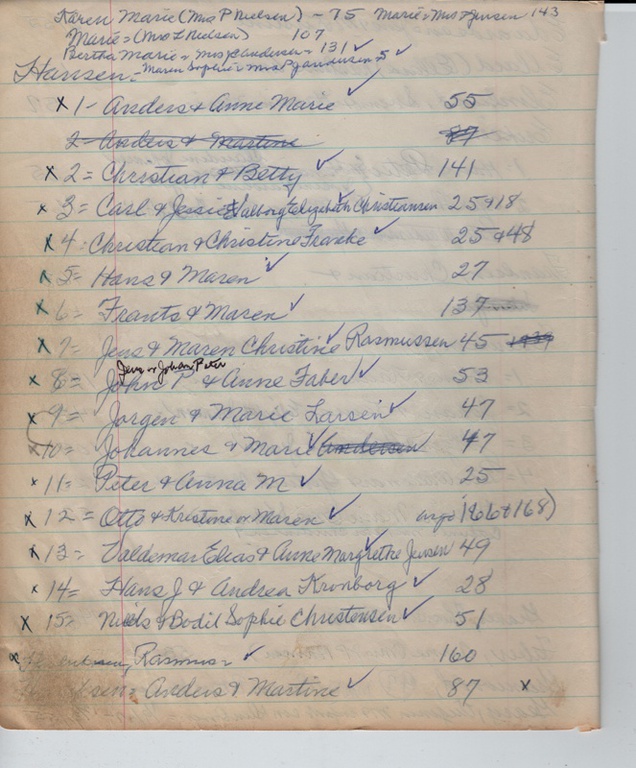 Karen Marie (Mrs P Nielsen) - 75 Marie = Mrs Jensen 143
Marie = (Mrs L Nielsen) 107
Bertha Marie = Mrs Sandersen = 131 ✓
Hansen - Maren Sophie = Mrs ✓
x 1 - Anders & Anne Marie ✓ 55
2 - Anders & Martine 87
x 2 = Christian & Betty ✓ 141
x 3 = Carl & Jessie Valborg Elizabeth Christiansen 25 & 18
x 4 - Christian & Christine Francke ✓ 25 & 48
x 5 - Hans & Maren ✓ 27
x 6 - Frants & Maren ✓ 137
x 7 - Jens & Maren Christine Rasmussen 45
Jens or Johan Peter
x 8 = John P & Anne Faber ✓ 53
x 9 = Jorgen & Marie Larsen ✓ 47
x 10 = Johannes & Marie ✓ Andersen 47
x 11 = Peter & Anna M ✓ 25
x 12 = Otto & Kristine or Maren ✓ (166 & 168)
x 13 = Valdemar Elias & Anne Margrethe Jensen 49
x 14 = Hans J & Andrea Kronborg ✓ 28
x 15 = Niels & Bodil Sophie Christensen ✓ 51
Rasmus = ✓ 160
Anders & Martine ✓ 87 x